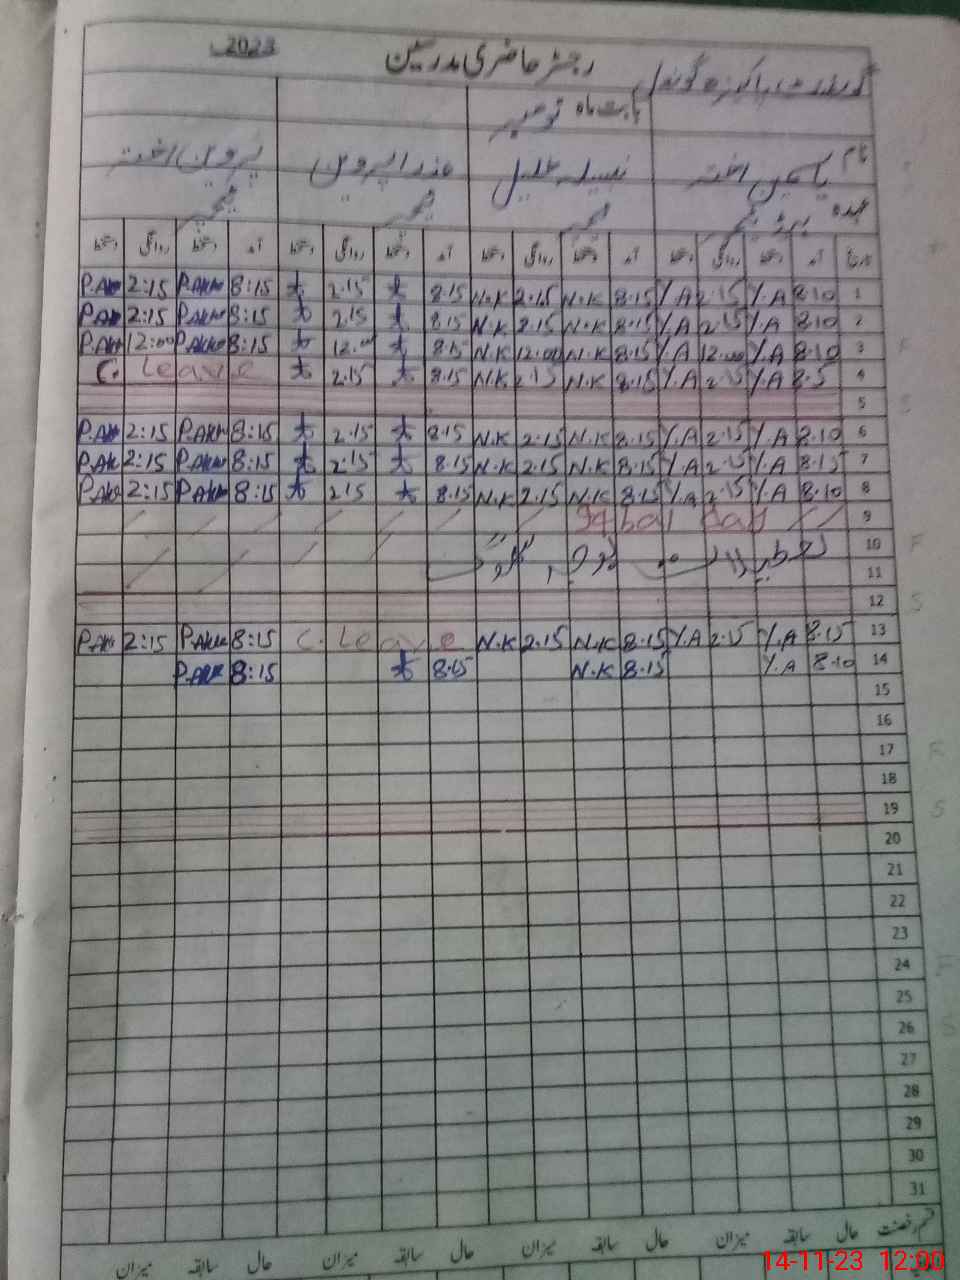 رجسٹر حاضری مدرسین 2023
بابت ماہ نومبر
نام یاسمین اختر نبیلہ خلیل عذرا پروین پروین اختر
عہدہ
تاریخ آمد دستخط روانگی دستخط آمد دستخط روانگی دستخط آمد دستخط روانگی دستخط آمد دستخط روانگی دستخط
1 8.10 Y.A 2.15 Y.A 8.15 N.K 2.15 N.K 8.15 2.15 8:15 2:15
2 8.10 Y.A 2.15 Y.A 8.15 N.K 2.15 N.K 8.15 2.15 8:15 2:15
3 8.10 Y.A 12.00 Y.A 8.15 N.K 12.00 N.K 8.15 12.00 8:15 12:00
4 8.5 Y.A 2.15 Y.A 8.15 N.K 2.15 N.K 8.15 2.15 C. Leave
5
6 8.10 Y.A 2.15 Y.A 8.15 N.K 2.15 N.K 8.15 2.15 8:15 2:15
7 8.15 Y.A 2.15 Y.A 8.15 N.K 2.15 N.K 8.15 2.15 8:15 2:15
8 8.10 Y.A 2.15 Y.A 8.15 N.K 2.15 N.K 8.15 2.15 8:15 2:15
9 Iqbal day
10 F
11
12 S
13 8.15 Y.A 2.15 Y.A 8.15 N.K 2.15 N.K C. Leave 8:15 2:15
14 8.10 Y.A 8.15 N.K 8.15 8:15
15
16
17
18
19 S
20
21
22
23
24
25
26
27
28
29
30
31
قسم رخصت حال سابقہ میزان حال سابقہ میزان حال سابقہ میزان حال سابقہ میزان
14-11-23 12:00